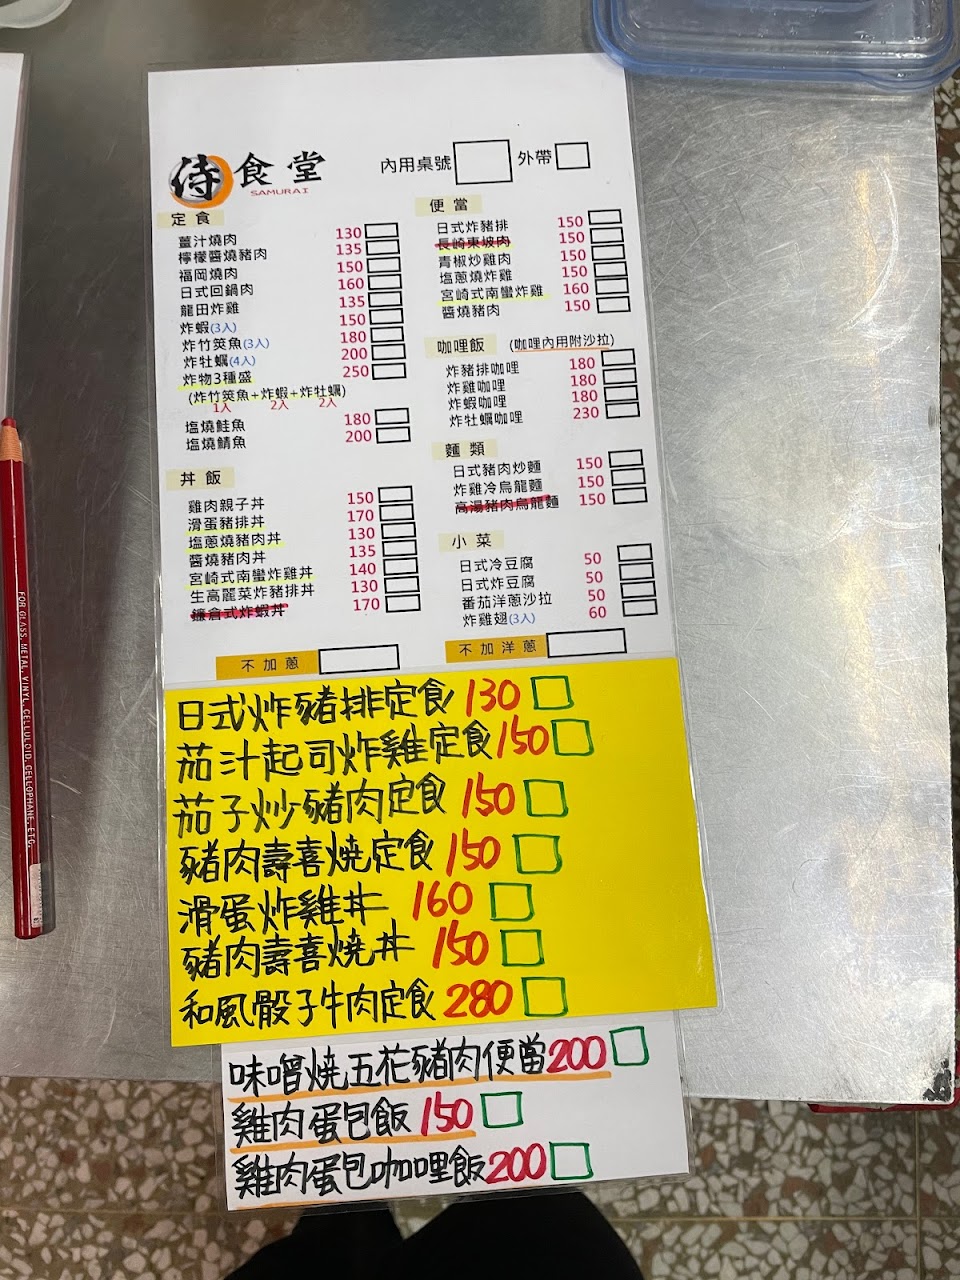 侍食堂
SAMURAI
內用桌號 外帶
定食
薑汁燒肉 130
檸檬醬燒豬肉 135
福岡燒肉 150
日式回鍋肉 160
龍田炸雞 135
炸蝦(3入) 150
炸竹筴魚(3入) 180
炸牡蠣(4入) 200
炸物3種盛 250
(炸竹筴魚+炸蝦+炸牡蠣)
1入 2入 2入
塩燒鮭魚 180
塩燒鯖魚 200
丼飯
雞肉親子丼 150
滑蛋豬排丼 170
塩蔥燒豬肉丼 130
醬燒豬肉丼 135
宮崎式南蠻炸雞丼 140
生高麗菜炸豬排丼 130
鎌倉式炸蝦丼 170
不加蔥
便當
日式炸豬排 150
長崎東坡肉 150
青椒炒雞肉 150
塩蔥燒炸雞 150
宮崎式南蠻炸雞 160
醬燒豬肉 150
咖哩飯 (咖哩內用附沙拉)
炸豬排咖哩 180
炸雞咖哩 180
炸蝦咖哩 180
炸牡蠣咖哩 230
麵類
日式豬肉炒麵 150
炸雞冷烏龍麵 150
高湯豬肉烏龍麵 150
小菜
日式冷豆腐 50
日式炸豆腐 50
番茄洋蔥沙拉 50
炸雞翅(3入) 60
不加洋蔥
日式炸豬排定食 130
茄汁起司炸雞定食 150
茄子炒豬肉定食 150
豬肉壽喜燒定食 150
滑蛋炸雞丼 160
豬肉壽喜燒丼 150
和風骰子牛肉定食 280
味噌燒五花豬肉便當 200
雞肉蛋包飯 150
雞肉蛋包咖哩飯 200
FOR GLASS, METAL, VINYL, CELLULOID, CELLOPHANE, ETC.